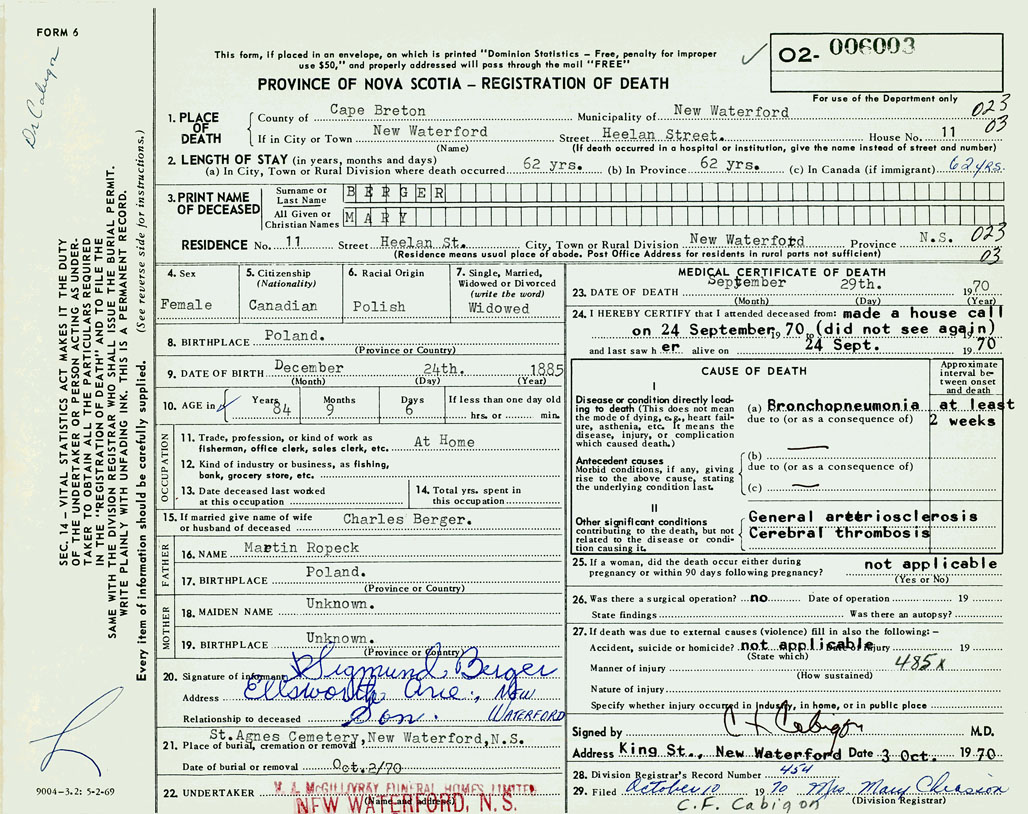 FORM 6
Dr Cabigon
This form, if placed in an envelope, on which is printed "Dominion Statistics – Free, penalty for improper
use $50," and properly addressed will pass through the mail "FREE"
PROVINCE OF NOVA SCOTIA – REGISTRATION OF DEATH
02- 006003
For use of the Department only
023
03
1. PLACE OF DEATH
County of Cape Breton Municipality of New Waterford
If in City or Town New Waterford Street Heelan Street. House No. 11
(Name) (If death occurred in a hospital or institution, give the name instead of street and number)
2. LENGTH OF STAY (in years, months and days)
(a) In City, Town or Rural Division where death occurred 62 yrs. (b) In Province 62 yrs. (c) In Canada (if immigrant) 62 yrs.
3. PRINT NAME OF DECEASED
Surname or Last Name BERGER
All Given or Christian Names MARY
RESIDENCE No. 11 Street Heelan St. City, Town or Rural Division New Waterford Province N.S. 023
(Residence means usual place of abode. Post Office Address for residents in rural parts not sufficient) 03
4. Sex
Female
5. Citizenship
(Nationality)
Canadian
6. Racial Origin
Polish
7. Single, Married,
Widowed or Divorced
(write the word)
Widowed
8. BIRTHPLACE Poland.
(Province or Country)
9. DATE OF BIRTH December 24th. 1885
(Month) (Day) (Year)
10. AGE in Years 84 Months 9 Days 6 If less than one day old
hrs. or min.
OCCUPATION
11. Trade, profession, or kind of work as
fisherman, office clerk, sales clerk, etc. At Home
12. Kind of industry or business, as fishing,
bank, grocery store, etc.
13. Date deceased last worked
at this occupation
14. Total yrs. spent in
this occupation
15. If married give name of wife
or husband of deceased Charles Berger.
FATHER
16. NAME Martin Ropeck
17. BIRTHPLACE Poland.
(Province or Country)
MOTHER
18. MAIDEN NAME Unknown.
19. BIRTHPLACE Unknown.
(Province or Country)
20. Signature of informant Sigmund Berger
Address Ellsworth Ave., New
Relationship to deceased Son. Waterford
21. Place of burial, cremation or removal St. Agnes Cemetery, New Waterford, N.S.
Date of burial or removal Oct. 2/70
22. UNDERTAKER V. J. McGILLIVRAY FUNERAL HOMES LIMITED
(Name and address)
NEW WATERFORD, N.S.
MEDICAL CERTIFICATE OF DEATH
23. DATE OF DEATH September 29th. 1970
(Month) (Day) (Year)
24. I HEREBY CERTIFY that I attended deceased from: made a house call
on 24 September, 19 70 to (did not see again)
and last saw h er alive on 24 Sept. 19 70
CAUSE OF DEATH
Approximate
interval be-
tween onset
and death
I
Disease or condition directly lead-
ing to death (This does not mean
the mode of dying, e.g., heart fail-
ure, asthenia, etc. It means the
disease, injury, or complication
which caused death.)
(a) Bronchopneumonia at least
due to (or as a consequence of) 2 weeks
Antecedent causes
Morbid conditions, if any, giving
rise to the above cause, stating
the underlying condition last.
(b) —
due to (or as a consequence of)
(c) —
II
Other significant conditions
contributing to the death, but not
related to the disease or condi-
tion causing it.
General arteriosclerosis
Cerebral thrombosis
25. If a woman, did the death occur either during
pregnancy or within 90 days following pregnancy? not applicable
(Yes or No)
26. Was there a surgical operation? no Date of operation 19
State findings Was there an autopsy?
27. If death was due to external causes (violence) fill in also the following: –
Accident, suicide or homicide? not applicable Date of injury 19
(State which)
Manner of injury 485 X
(How sustained)
Nature of injury
Specify whether injury occurred in industry, in home, or in public place
Signed by C F Cabigon M.D.
Address King St., New Waterford Date 3 Oct. 1970
28. Division Registrar's Record Number 454
29. Filed October 10 1970 Mrs Mary Chiasson
C.F. Cabigon (Division Registrar)
SEC. 14 – VITAL STATISTICS ACT MAKES IT THE DUTY
OF THE UNDERTAKER OR PERSON ACTING AS UNDER-
TAKER TO OBTAIN ALL THE PARTICULARS REQUIRED
IN THE "REGISTRATION OF DEATH" AND TO FILE THE
SAME WITH THE DIVISION REGISTRAR WHO SHALL ISSUE THE BURIAL PERMIT.
WRITE PLAINLY WITH UNFADING INK. THIS IS A PERMANENT RECORD.
Every item of information should be carefully supplied. (See reverse side for instructions.)
9004-3.2: 5-2-69